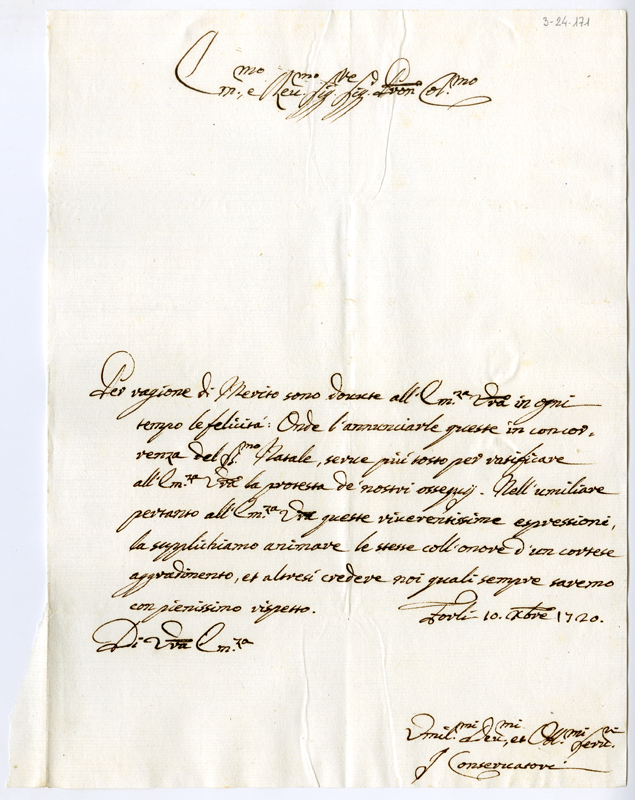 3-24-171
Em.mo, e Rev.mo Sig.re Sig. Pron Col.mo
Per ragione di Merito sono dovute all'Em.za Vra in ogni
tempo le felicità: Onde l'annunciarle queste in concor,
renza del S.mo Natale, serve più tosto per ratificare
all'Em.za Vra la protesta de' nostri ossequij. Nell'umiliare
pertanto all'Em.za Vra queste riverentissime espressioni,
la supplichiamo animare le stesse coll'onore d'un cortese
aggradimento, et altresì credere noi quali sempre saremo
con pienissimo rispetto. Forlì 10. Xbre 1720.
Di Vra Em.za
Vmil.mi Dev.mi, et Obl.mi Serv.ri
I Conservatori